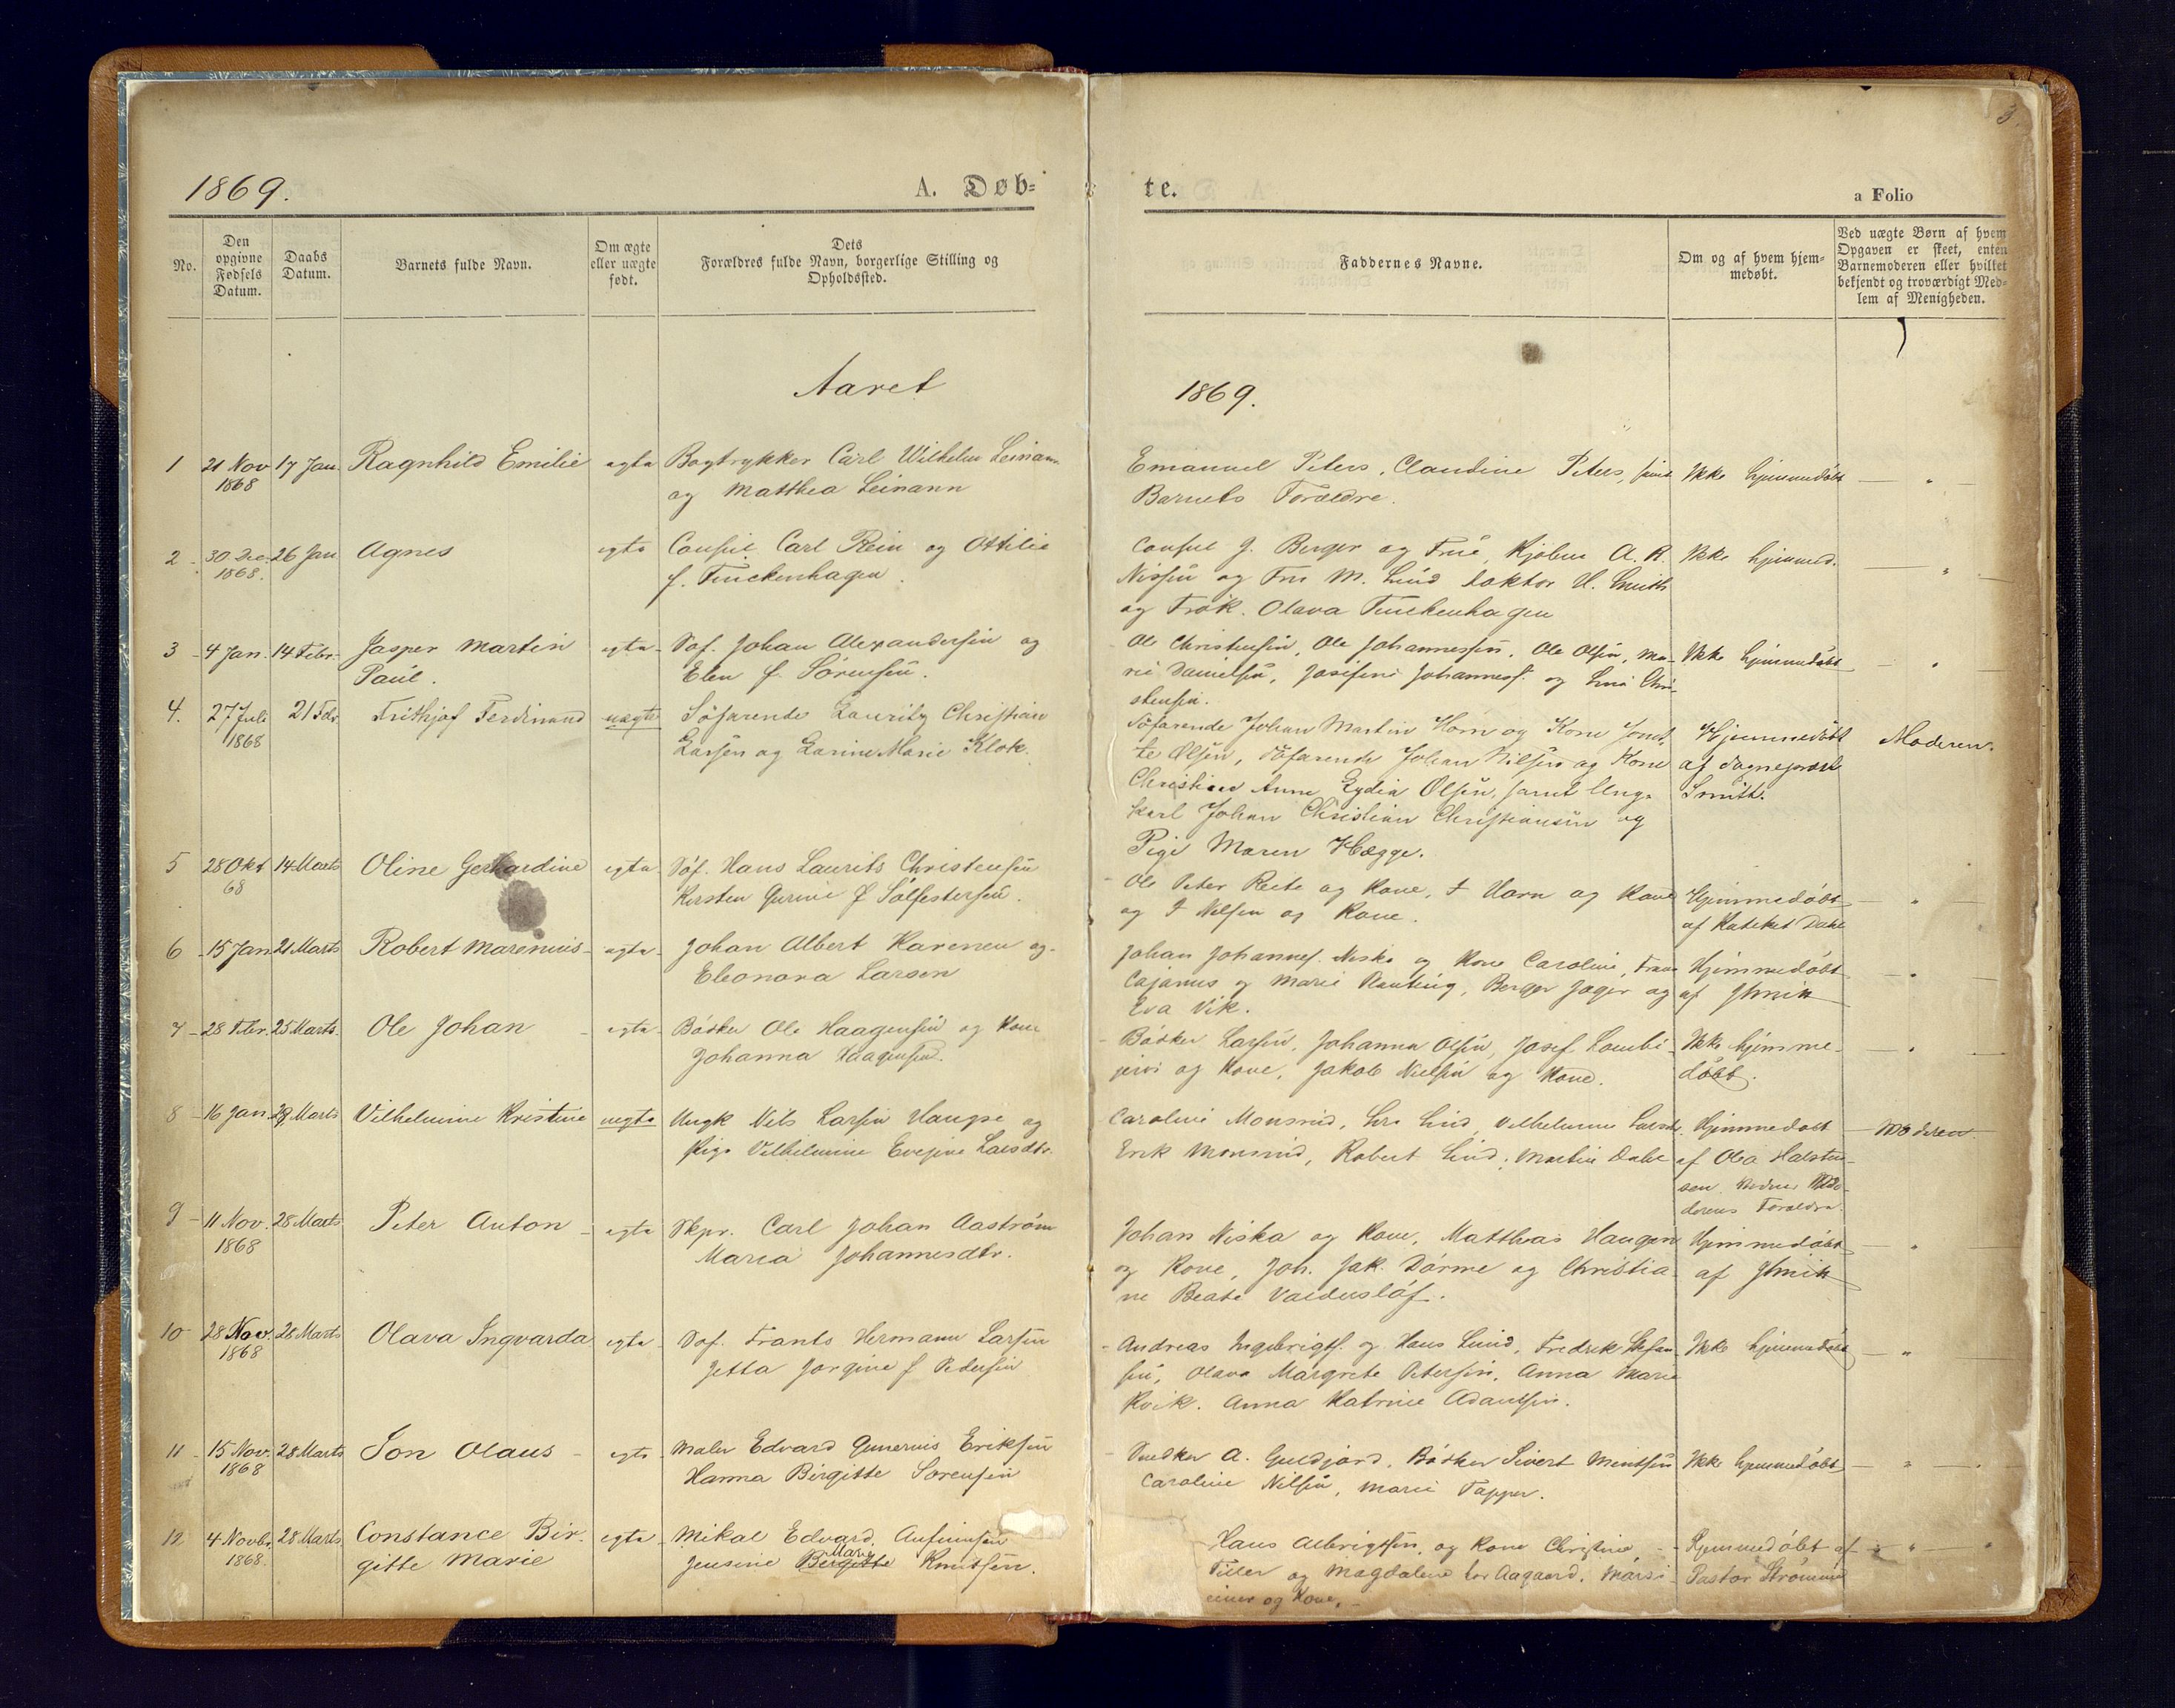 3.
1869.
A. Døb=
te.
a Folio
No.
Den
opgivne
Fødsels
Datum.
Daabs
Datum.
Barnets fulde Navn.
Om ægte
eller uægte
født.
Dets
Forældres fulde Navn, borgerlige Stilling og
Opholdssted.
Faddernes Navne.
Om og af hvem hjem=
medøbt.
Ved uægte Børn af hvem
Opgaven er skeet, enten
Barnemoderen eller hvilket
bekjendt og troværdigt Med=
lem af Menigheden.
Aaret
1869.
1 21 Nov 17 Jan. Ragnhild Emilie ægte Bogtrykker Carl Wilhelm Leinann Emanuel Peters, Claudine Peters, samt Ikke hjemmedøbt — " —
1868 og Matthea Leinann Barnets Forældre.
2 - 30 Dec 26 Jan Agnes egte Consul Carl Rein og Ottilie Consul J. Berger og Frue, Kjøbm A. R. Ikke hjemmed. — " —
1868. f. Finckenhagen. Nissen og Fru M. Lund Doktor U. Smith
og Frøk. Olava Finckenhagen
3 - 4 Jan. 14 Febr. Jasper Martin egte Søf. Johan Alexandersen og Ole Christensen, Ole Johannessen, Ole Olsen, Ma- Ikke hjemmedøbt — " —
Paul. Elen f. Sørensen. rie Danielsen, Josefine Johannesf. og Lina Chri-
stensen.
4. 27 Juli 21 Febr Frithjof Ferdinand uægte Söfarende Lauritz Christian Söfarende Johan Martin Horn og Kone Hjemmedöbt Moderen.
1868 Larsen og Larine Marie Klok. te Olsen, Söfarende Johan Nilsen og Kone af Sognepræst
Christine Anne Lydia Olsen, samt Unge Smith.
karl Johan Christian Christiansen og
Pige Maren Hægge.
5 28 Okt 14 Marts Oline Gerhardine egte Søf. Hans Laurits Christensen Ole Peter Reite og Kone, J Horn og Kone Hjemmedøbt — " —
68 Kirsten Gurine f Sølfestersen. og J Nilsen og Kone. af Kateket Dahl
6 - 15 Jan 21 Marts Robert Marenius - ægte - Johan Albert Karenen og- Johan Johannes. Niska og Kone Caroline, Frans Hjemmedøbt — " —
Eleonora Larsen Cajanus og Marie Ranting, Berger Jager og af
Eva Vik.
7 - 28 Febr. 25 Marts. Ole Johan - egte - Bødker Ole Haagensen og Kone Bødker Larsen, Johanna Olsen, Josef Lombi- Ikke hjemme- — " —
Johanna Haagensen. jervi og Kone, Jakob Nielsen og Kone. døbt.
8 - 16 Jan. 28 Marts Vilhelmine Kristine uegte Ungk Nils Larsen Haugse og Caroline Monsrud, Lund, Vilhelmine Larsdtr. Hjemmedøbt — Moderen
Pige Vilhelmine Evejine Larsdtr. Erik Monsrud, Robert Lind, Martin Dahl af Ola Halsten-
sen Mo-
derens Forældre.
9 - 11 Nov. 28 Marts Peter Anton - egte Skpr. Carl Johan Aaström Johan Niska og Kone, Matthias Haugen Hjemmedøbt — " —
1868 Maria Johannesdtr. og Kone, Joh. Jak. Dørme og Christia- af
ne Beate
10 28 Nov. 28 Marts Olava Ingvarda egte - Søf. Frants Hermann Larsen Andreas Ingebrigts. og Hans Lund, Fredrik Stefan- Ikke hjemmedøbt — "
1868 Jetta Jorgine f Pedersen sen, Olava Margrete Petersen, Anna Marie
Kvik. Anna Katrine Adamsen.
11 - 15 Nov. 28 Marts Jon Olaus - egte - Maler Edvard Gunerius Eriksen Snedker A. Guldjord, Bødker Sivert Mentsen Ikke hjemmedøbt — " —
1868 Hanna Birgitte Sørensen Caroline Nilsen, Marie Tapper.
12 4 Novbr 28 Marts Constance Bir- egte - Mikal Edvard Anfinnsen Hans Albrigtsen og Kone Christine - Hjemmedøbt af — " — "
1868. gitte Marie Jensine Birgitte Marie Knutsen. Tiller og Magdalene Aagaard. Pastor Strømme
og Kone. -